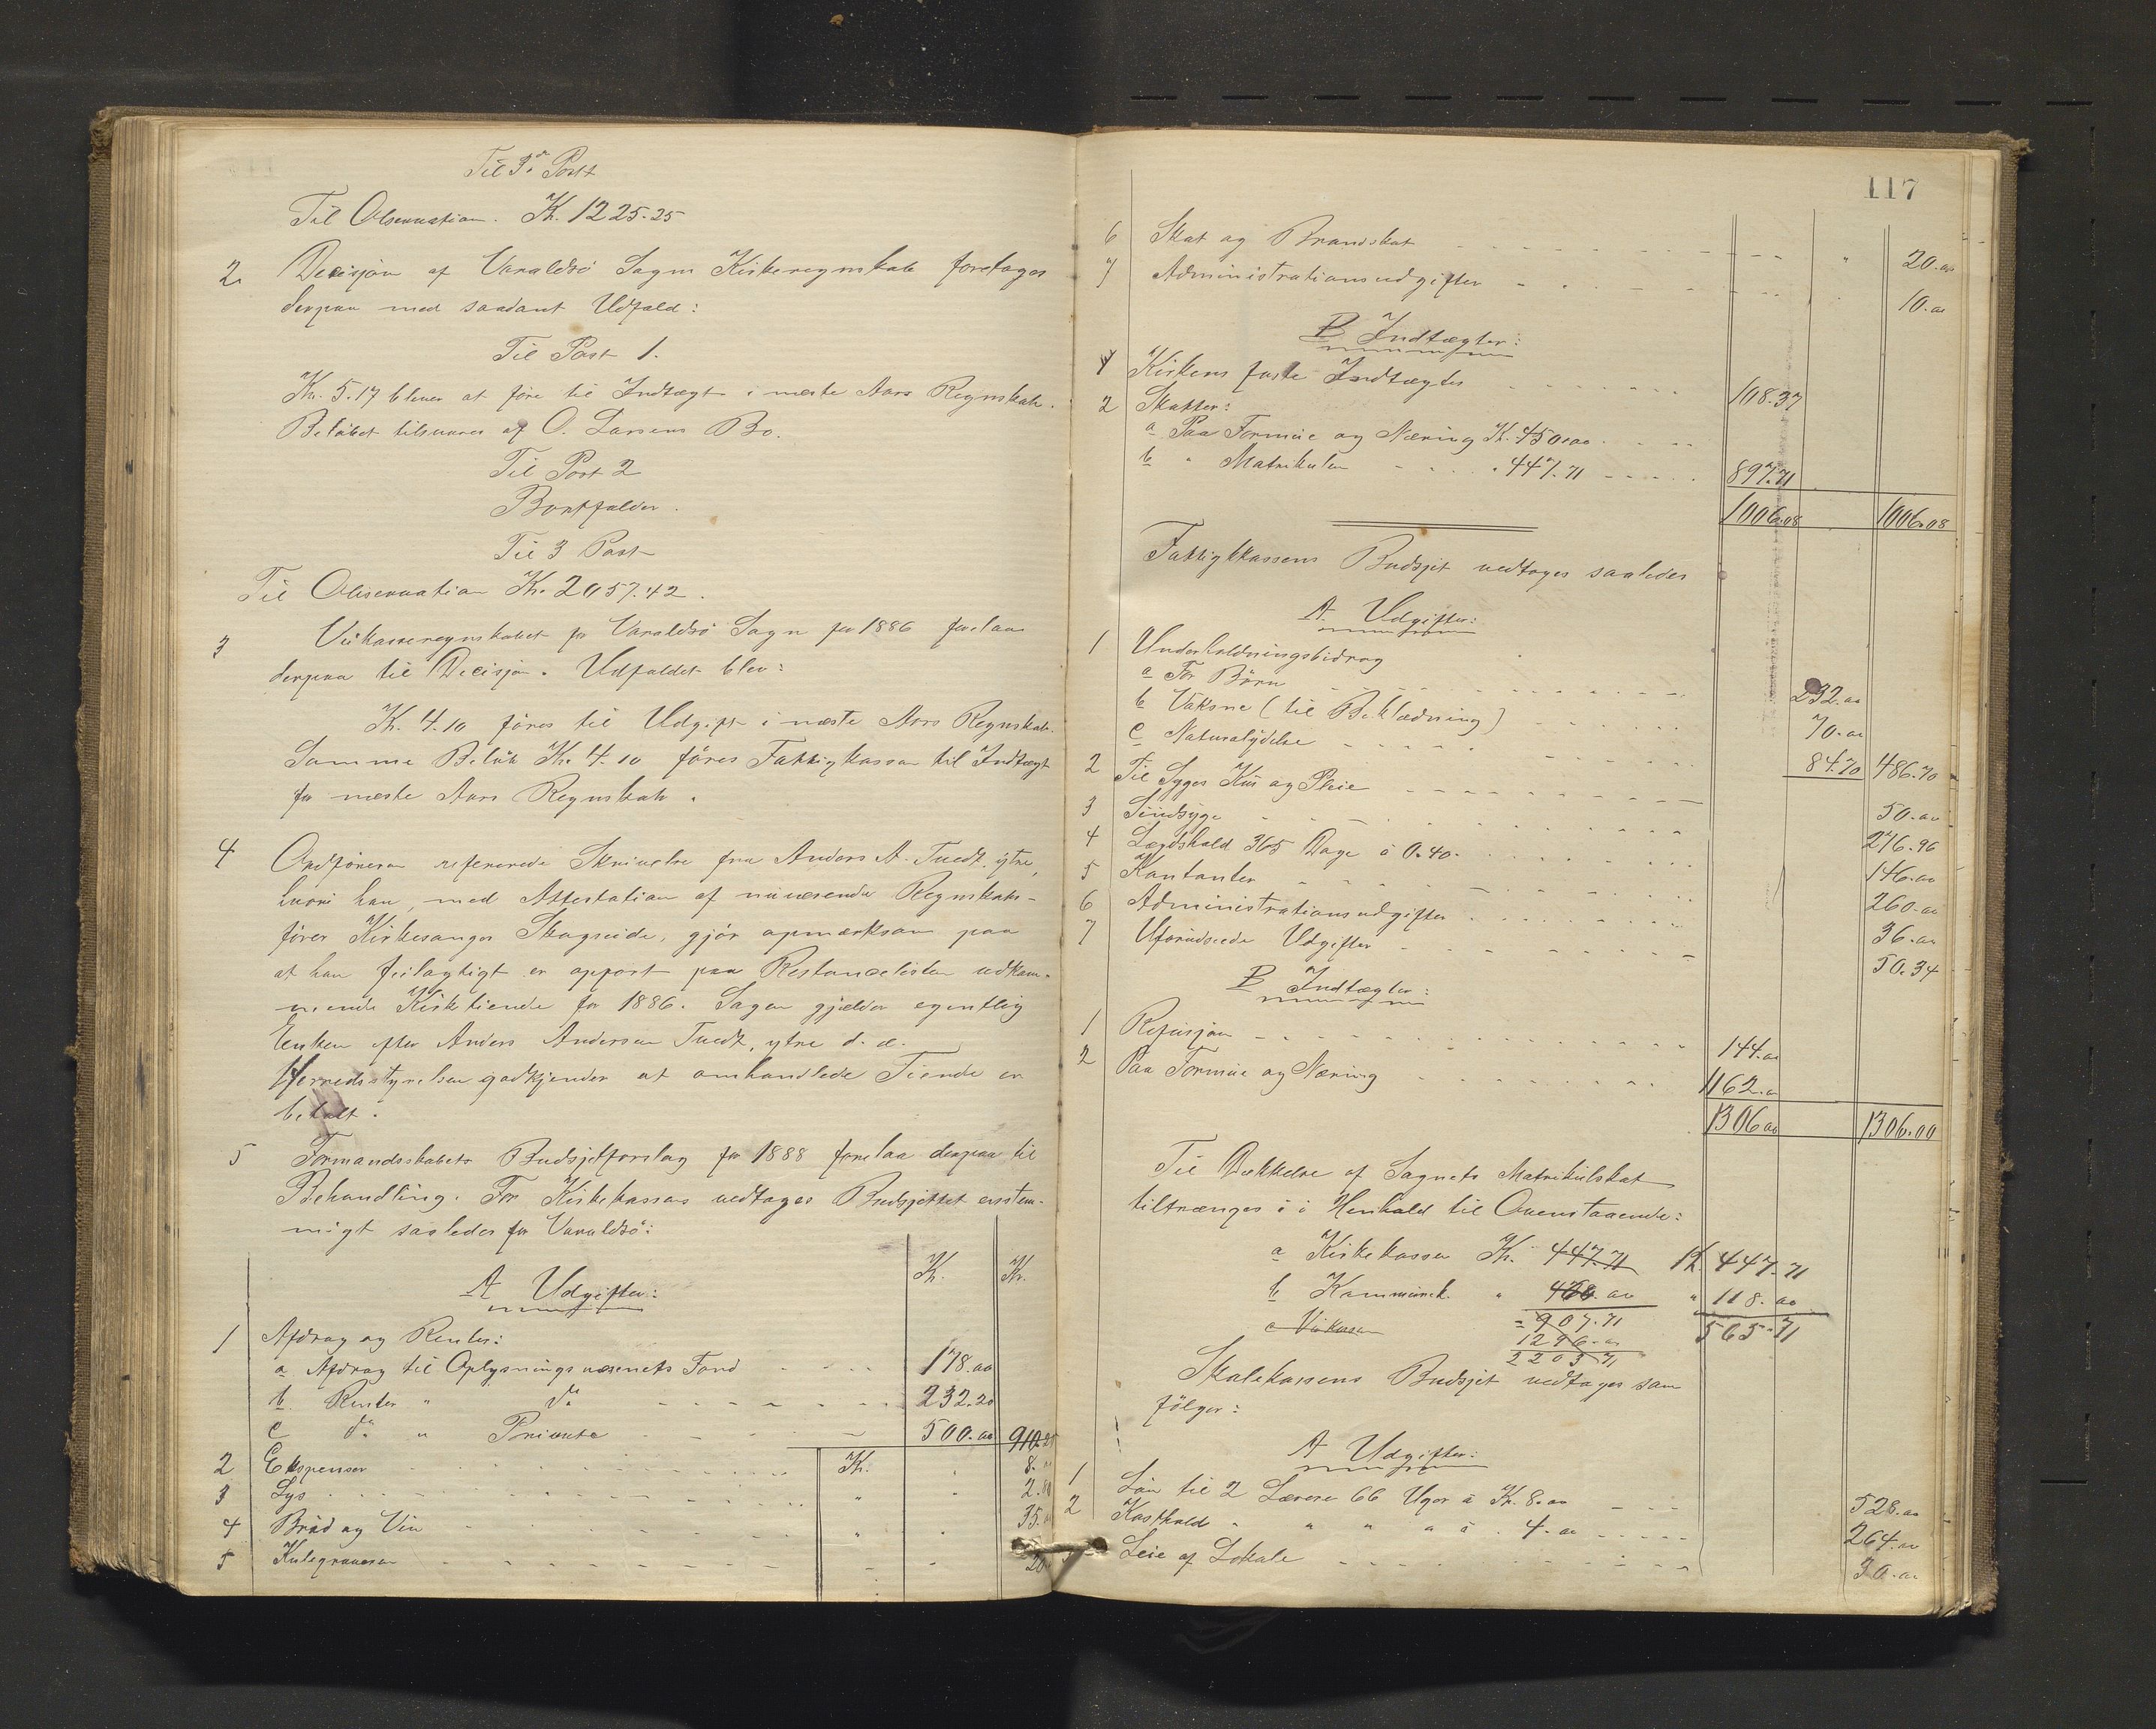 Til 3die Post
Til Observation. Kr. 1225.25
2. Decisjon af Varaldsö Sogns Kirkeregnskab foretoges
derpaa med saadant Udfald:
Til Post 1.
Kr. 5.17 bliver at føre til Indtægt i næste Aars Regnskab.
Belöbet tilsvares af O. Larsens Bo.
Til Post 2
Bortfalder.
Til 3 Post
Til Observation Kr. 2057.42.
3 Veikasseregnskabet for Varaldsö Sogn for 1886 forelaa
derpaa til Decisjon. Udfaldet blev:
Kr. 4.10 föres til Udgift i næste Aars Regnskab.
Samme Belöb Kr. 4.10 föres Fattigkassen til Indtægt
for næste Aars Regnskab.
4 Ordføreren refererede Skrivelse fra Anders A. Tvedt, ytre,
hvori han, med Attestation af nuværende Regnskabs-
fører Kirkesanger Skogseide, gjör opmærksom paa
at han feilagtigt er oppört paa Restancelisten vedkom-
mende Kirketiende for 1886. Sagen gjælder egentlig
Enken efter Anders Andersen Tvedt, ytre d. æ.
Herredsstyrelsen godkjender at omhandlede Tiende er
betalt.
5 Formandsskabets Budsjetforslag for 1888 forelaa derpaa til
Behandling. For Kirkekassen vedtages Budsjettet enstem-
migt saaledes for Varaldsö:
A Udgifter: Kr. Kr.
1 Afdrag og Renter:
a Afdrag til Oplysningsvæsenets Fond 178.00
b. Renter " do 232.20
c do " Private 500.00 910.20
2 Expenser Kr. 8.
3 Lys " 2.80
4 Bröd og Vin " 35.
5 Kulegraveren 20
117
6 Skat og Brandskat " 20.00
7 Administrationsudgifter 10.00
B Indtægter:
1 Kirkens faste Indtægter 108.37
2 Skatter:
a Paa Formue og Næring Kr. 450.00
b " Matrikulen 447.71 897.71
1006.08 1006.08
Fattigkassens Budsjet vedtages saaledes
A. Udgifter:
1 Underholdningsbidrag
a For Börn 232.00
b Voksne (til Beklædning) 70.00
c Naturalydelse 84.70 486.70
2 Til Syges Kur og Pleie 50.00
3 Sindsyge 276.96
4 Lægdshold 365 Dage á 0.40. 146.00
5 Kontanter 260.00
6 Administrationsudgifter 36.00
7 Uforudseede Udgifter 50.34
B Indtægter:
1 Refusjon 144.00
2 Paa Formue og Næring 1162.00
1306.00 1306.00
Til Dækkelse af Sognets Matrikulskat
tiltrænges i Henhold til Ovenstaaende:
a Kirkekassen Kr. 447.71 Kr. 447.71
b Kommunek. " 460.00 " 118.00
c Veikassen = 907.71 565.71
1296.00
2203.71
Skolekassens Budsjet vedtages som
fölger:
A Udgifter:
1 Lön til 2 Lærere 66 Uger á Kr. 8.00 528.00
2 Kosthold " " " á " 4.00 264.00
Leie af Lokale 30.00